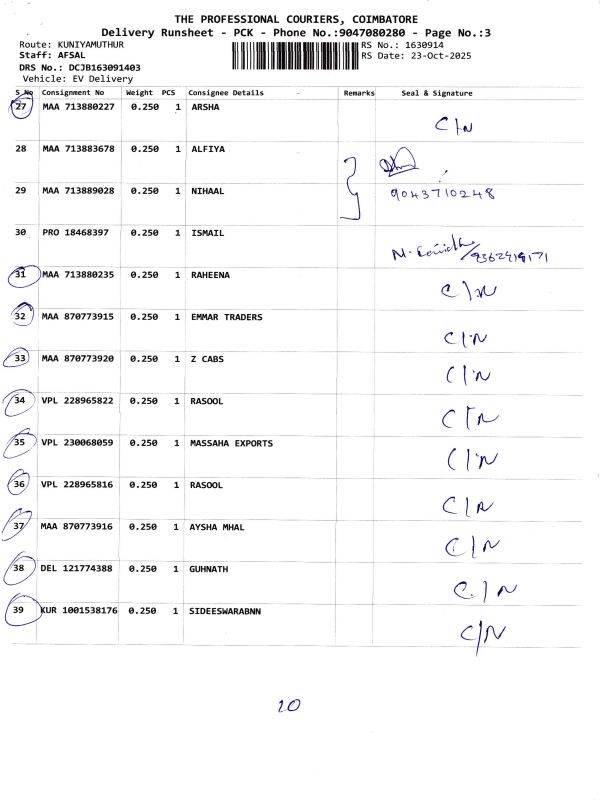 THE PROFESSIONAL COURIERS, COIMBATORE
Delivery Runsheet - PCK - Phone No.:9047080280 - Page No.:3
Route: KUNIYAMUTHUR RS No.: 1630914
Staff: AFSAL RS Date: 23-Oct-2025
DRS No.: DCJB163091403
Vehicle: EV Delivery
S No Consignment No Weight PCS Consignee Details Remarks Seal & Signature
27 MAA 713880227 0.250 1 ARSHA
C/N
28 MAA 713883678 0.250 1 ALFIYA
29 MAA 713889028 0.250 1 NIHAAL
9043710248
30 PRO 18468397 0.250 1 ISMAIL
31 MAA 713880235 0.250 1 RAHEENA
C/N
32 MAA 870773915 0.250 1 EMMAR TRADERS
C/N
33 MAA 870773920 0.250 1 Z CABS
C/N
34 VPL 228965822 0.250 1 RASOOL
C/N
35 VPL 230068059 0.250 1 MASSAHA EXPORTS
C/N
36 VPL 228965816 0.250 1 RASOOL
C/N
37 MAA 870773916 0.250 1 AYSHA MHAL
C/N
38 DEL 121774388 0.250 1 GUHNATH
C/N
39 KUR 1001538176 0.250 1 SIDEESWARABNN
C/N
10